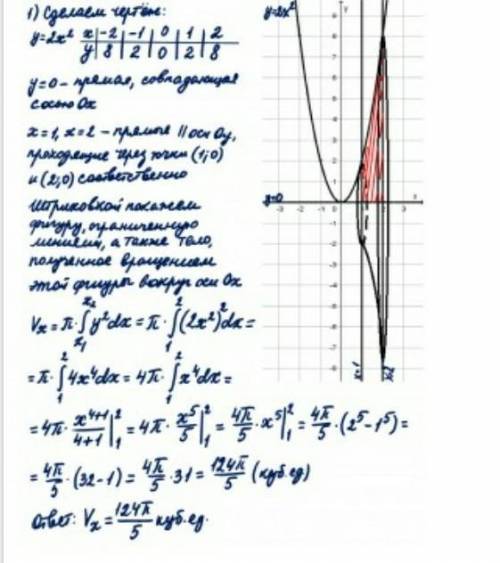 1) Сделаем чертёж:
y=2x² x|-2|-1|0|1|2
y|8|2|0|2|8
y=0 - прямая, совпадающая
с осью Ox
x=1, x=2 - прямые || оси Oy,
проходящие через точки (1;0)
и (2;0) соответственно
Штриховкой покажем
фигуру, ограниченную
линиями, а также тело,
полученное вращением
этой фигуры вокруг оси Ox
Vx = π·∫x₁x₂ y²dx = π·∫₁² (2x²)²dx =
= π·∫₁² 4x⁴dx = 4π·∫₁² x⁴dx =
= 4π· x⁴⁺¹/4+1 |₁² = 4π· x⁵/5 |₁² = 4π/5 · x⁵|₁² = 4π/5 ·(2⁵-1⁵)=
= 4π/5 ·(32-1)= 4π/5 ·31= 124π/5 (куб.ед)
Ответ: Vx = 124π/5 куб.ед.
y=2x²
y
9
8
7
6
5
4
3
2
y=0
-3 -2 -1
-2
-3
-4
-5
-6
-7
-8
x=1
x=2